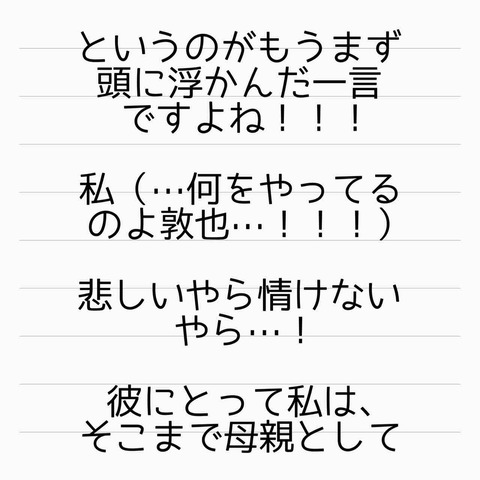 というのがもうまず
頭に浮かんだ一言
ですよね！！！
私（…何をやってる
のよ敦也…！！！）
悲しいやら情けない
やら…！
彼にとって私は、
そこまで母親として